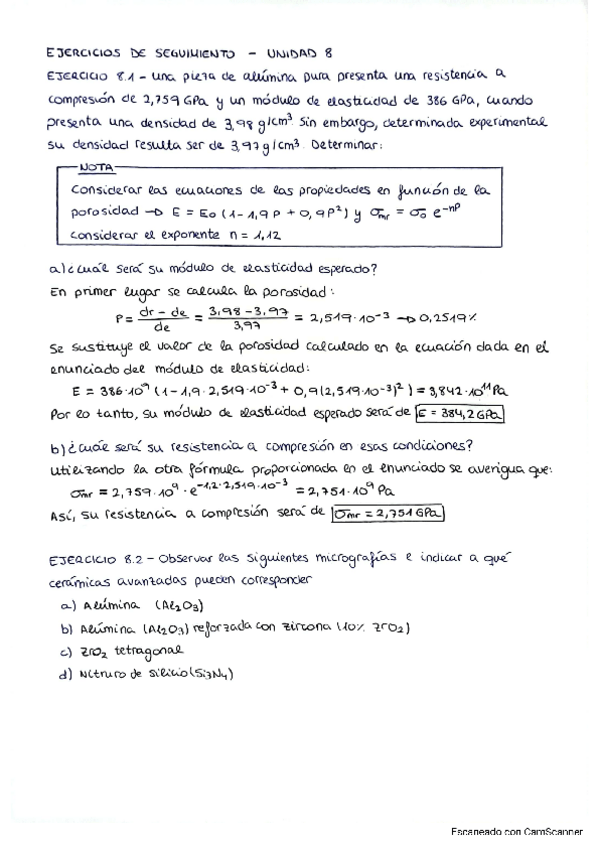 EJERCICIOS DE SEGUIMIENTO - UNIDAD 8
EJERCICIO 8.1 - una pieza de alúmina pura presenta una resistencia a
compresión de 2,759 GPa y un módulo de elasticidad de 386 GPa, cuando
presenta una densidad de 3,98 g/cm³. Sin embargo, determinada experimental
su densidad resulta ser de 3,97 g/cm³. Determinar:
NOTA
Considerar las ecuaciones de las propiedades en función de la
porosidad → E = E₀ (1 - 1,9P + 0,9P²) y σmr = σ₀ e^-nP
Considerar el exponente n = 1,12
a) ¿cuál será su módulo de elasticidad esperado?
En primer lugar se calcula la porosidad:
P = (dr - de)/de = (3,98 - 3,97)/3,97 = 2,519·10⁻³ → 0,2519%
Se sustituye el valor de la porosidad calculado en la ecuación dada en el
enunciado del módulo de elasticidad:
E = 386·10⁹ (1 - 1,9·2,519·10⁻³ + 0,9(2,519·10⁻³)²) = 3,842·10¹¹ Pa
Por lo tanto, su módulo de elasticidad esperado será de E = 384,2 GPa
b) ¿cuál será su resistencia a compresión en esas condiciones?
Utilizando la otra fórmula proporcionada en el enunciado se averigua que:
σmr = 2,759·10⁹·e^-1,2·2,519·10⁻³ = 2,751·10⁹ Pa
Así, su resistencia a compresión será de σmr = 2,751 GPa
EJERCICIO 8.2 - Observar las siguientes micrografías e indicar a qué
cerámicas avanzadas pueden corresponder
a) Alúmina (Al₂O₃)
b) Alúmina (Al₂O₃) reforzada con zircona (10% ZrO₂)
c) ZrO₂ tetragonal
d) Nitruro de silicio (Si₃N₄)
Escaneado con CamScanner